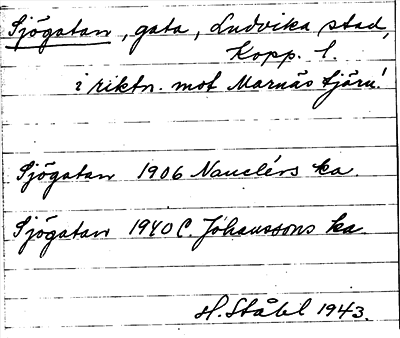 Sjögatan, gata, Ludvika stad,
Kopp. l.
i riktn. mot Marnäs tjärn!
Sjögatan 1906 Nauclérs ka.
Sjögatan 1940 C. Johanssons ka.
H. Ståhl 1943.